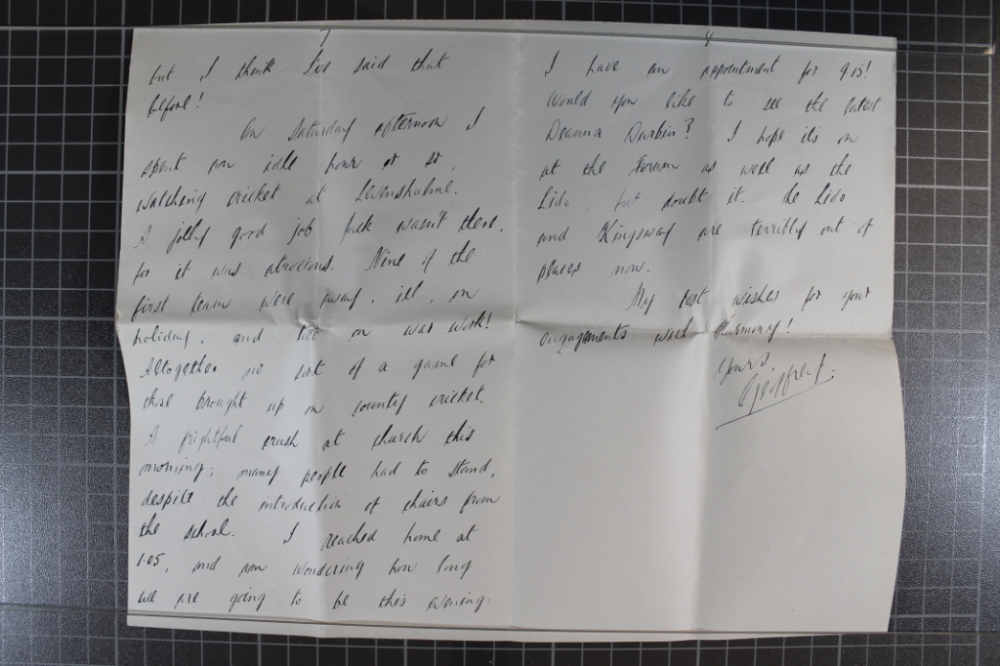 7
but I think I've said that
before!
On Saturday afternoon I
spent an idle hour or so,
watching cricket at Levenshulme.
A jolly good job Jack wasn't there,
for it was atrocious. Nine of the
first team were away, ill, on
holiday, and two on war work!
Altogether no sort of a game for
those brought up on county cricket.
A frightful crush at church this
morning; many people had to stand,
despite the introduction of chairs from
the school. I reached home at
1.05, and am wondering how long
we are going to be this evening.
8
I have an appointment for 9.05!
Would you like to see the latest
Deanna Durbin? I hope its on
at the Forum as well as the
Lido, but doubt it. The Lido
and Kingsway are terribly out of
places now.
My best wishes for your
engagements with Harmony!
Yours,
Geoffrey.